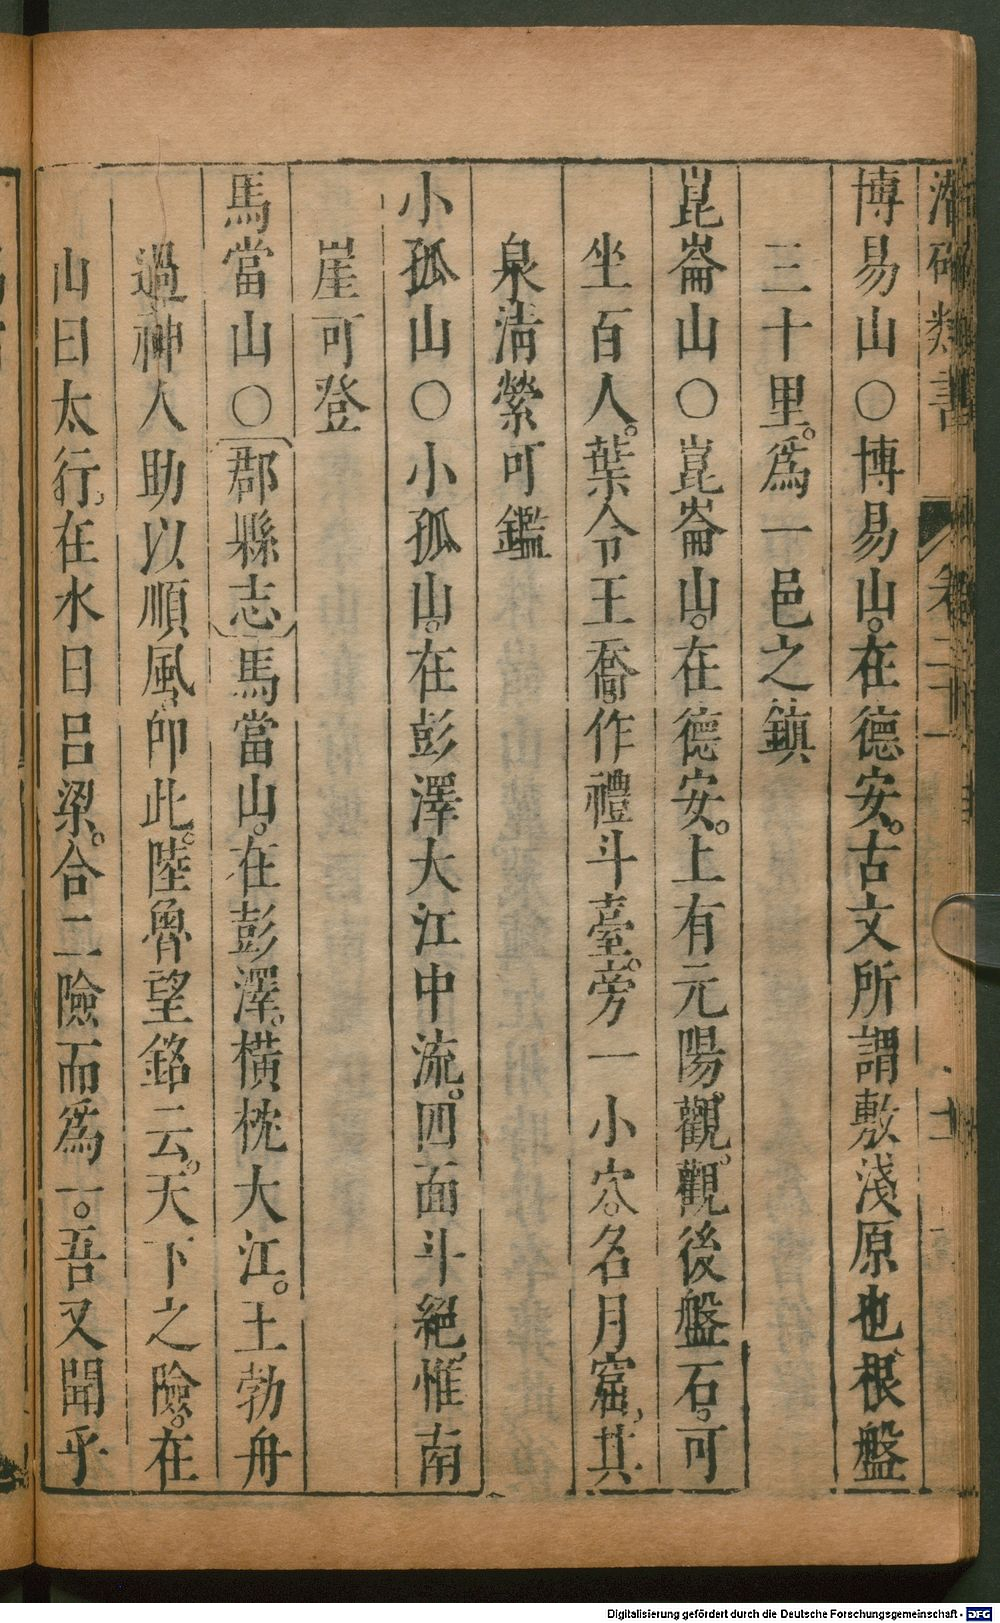 潛確類書 卷二十一 十
博易山○博易山。在德安。古文所謂敷淺原也、根盤
三十里。爲一邑之鎮
崑崙山○崑崙山。在德安。上有元陽觀。觀後盤石。可
坐百人。葉令王喬。作禮斗臺。旁一小穴。名月窟、其
泉淸瑩可鑑
小孤山○小孤山。在彭澤大江中流。四面斗絕、惟南
崖可登
馬當山○〔郡縣志〕馬當山。在彭澤。橫枕大江。王勃舟
過神人助以順風、卽此。陸魯望銘云。天下之險。在
山曰太行、在水曰呂梁。合二險而爲一。吾又聞乎
Digitalisierung gefördert durch die Deutsche Forschungsgemeinschaft - DFG